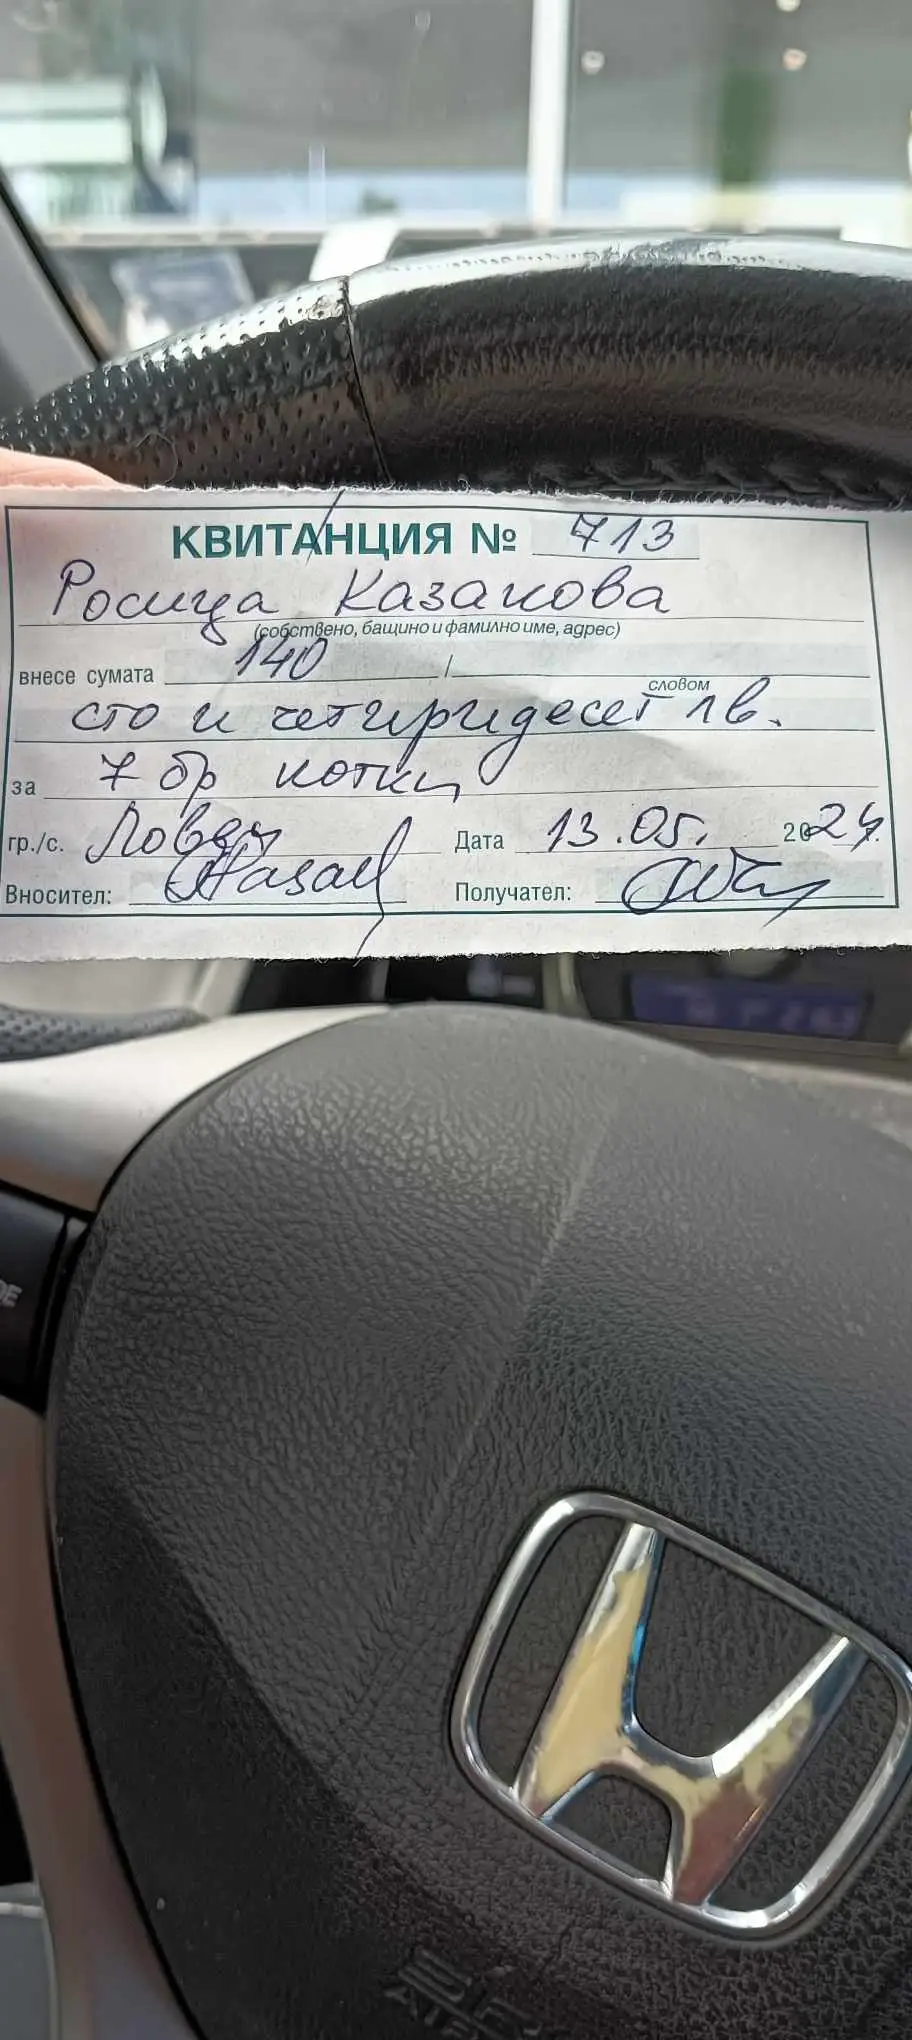 КВИТАНЦИЯ № 713
Росица Казакова
(собствено, бащино и фамилно име, адрес)
внесе сумата 140 /
словом
сто и четиридесет лв.
за 7 бр котки
гр./с. Ловеч Дата 13.05. 2024.
Вносител: Получател: